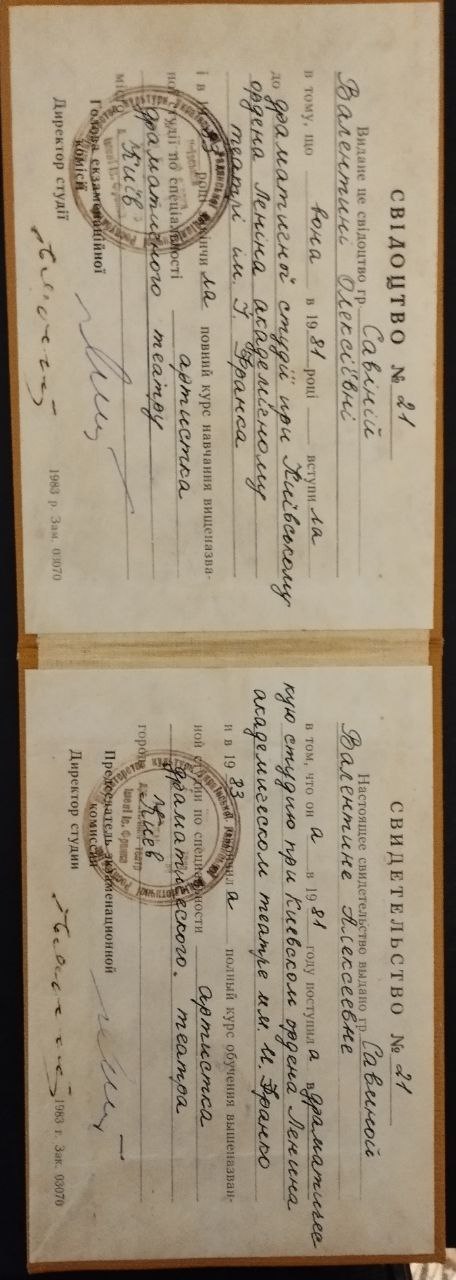 СВІДОЦТВО № 21
Видане це свідоцтво гр. Савіній
Валентині Олексіївні
в тому, що вона в 1981 році вступила
до драматичної студії при Київському
ордена Леніна академічному
театрі ім. І. Франка
і в 1983 році закінчила повний курс навчання вищеназва-
ної студії по спеціальності артистка
драматичного театру
місто Київ
Голова екзаменаційної
комісії
Директор студії
1983 р. Зам. 03070
СВИДЕТЕЛЬСТВО № 21
Настоящее свидетельство выдано гр. Савиной
Валентине Алексеевне
в том, что она в 1981 году поступила в драматичес
кую студию при Киевском ордена Ленина
академическом театре им. И. Франко
и в 1983 полный курс обучения вышеназван-
ной студии по специальности артистка
драматического театра
город Киев
Председатель экзаменационной
комиссии
Директор студии
1983 г. Зак. 03070